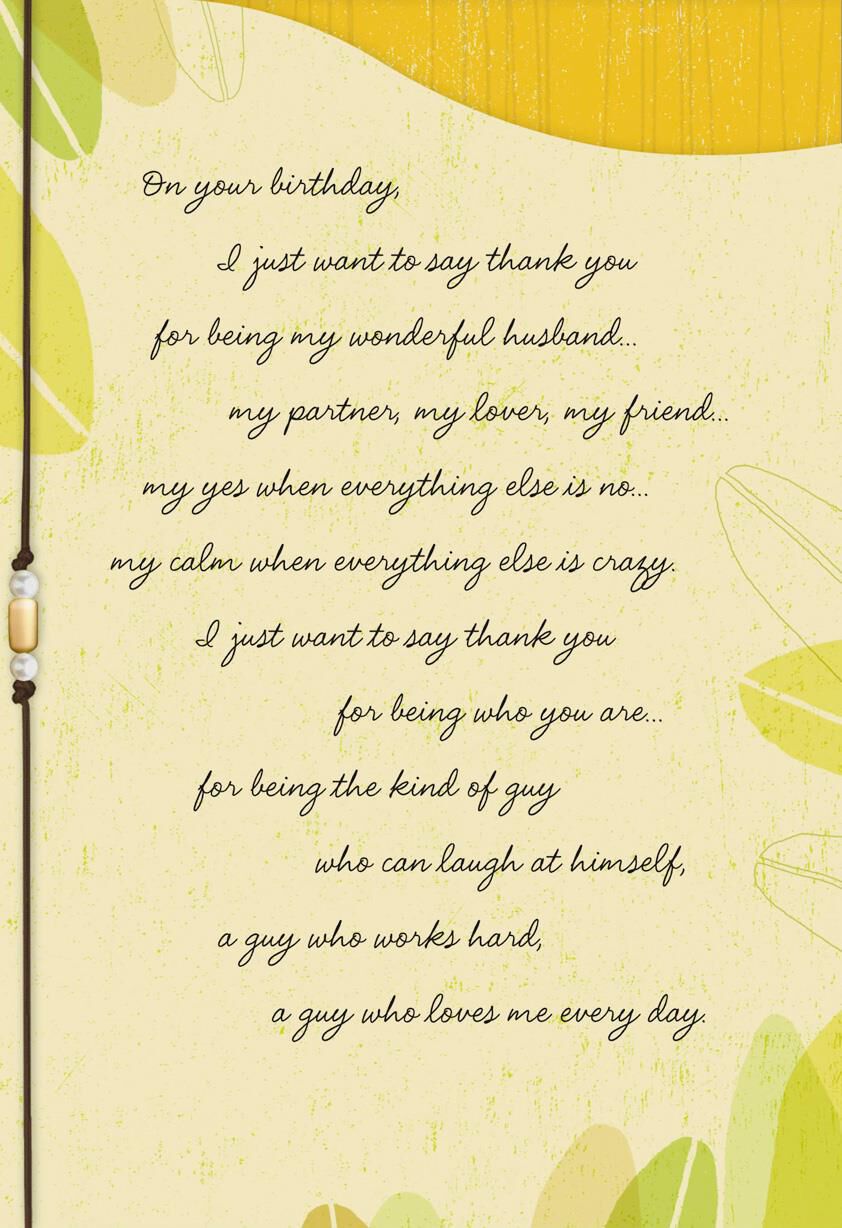 On your birthday,
I just want to say thank you
for being my wonderful husband...
my partner, my lover, my friend...
my yes when everything else is no...
my calm when everything else is crazy.
I just want to say thank you
for being who you are...
for being the kind of guy
who can laugh at himself,
a guy who works hard,
a guy who loves me every day.